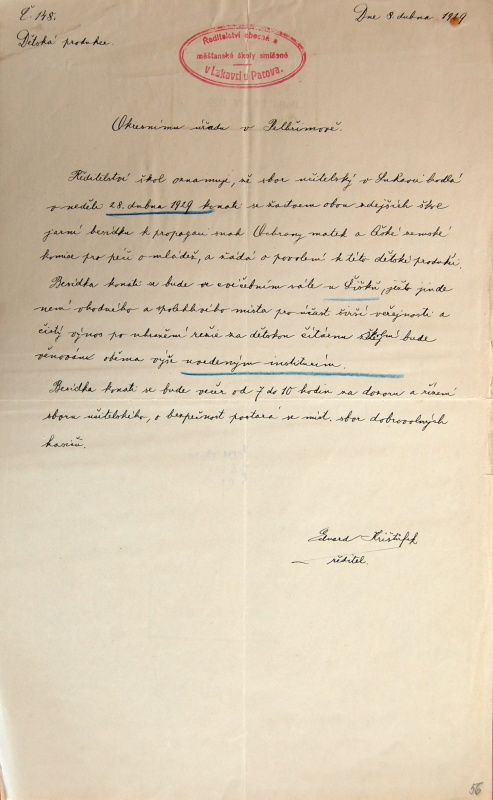 Č. 148.
Dne 8. dubna 1929
Dětská produkce.
Ředitelství obecné a
měšťanské školy smíšené
v Lukavci u Pacova.
Okresnímu úřadu v Pelhřimově.
Ředitelství škol oznamuje, že sbor učitelský v Lukavci hodlá
v neděli 28. dubna 1929 konati s žactvem obou zdejších škol
jarní besídku k propagaci snah Ochrany matek a České zemské
komise pro péči o mládež, a žádá o povolení k této dětské produkci.
Besídka konati se bude ve cvičebním sále u Šišků, ježto jinde
není vhodného a spolehlivého místa pro účast širší veřejnosti a
čistý výnos po uhražení režie za dětskou čítárnu bude
věnován oběma výše uvedeným institucím.
Besídka konati se bude večer od 7 do 10 hodin za dozoru a řízení
sboru učitelského, o bezpečnost postará se míst. sbor dobrovolných
hasičů.
Eduard Krištůfek
ředitel.
56